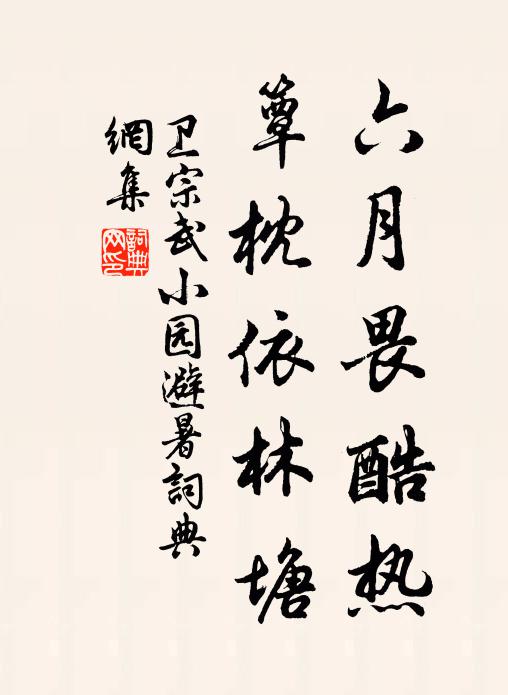 六月畏酷热
簟枕依林塘
卫宗武小园避暑詞典
網集
詞典
网印